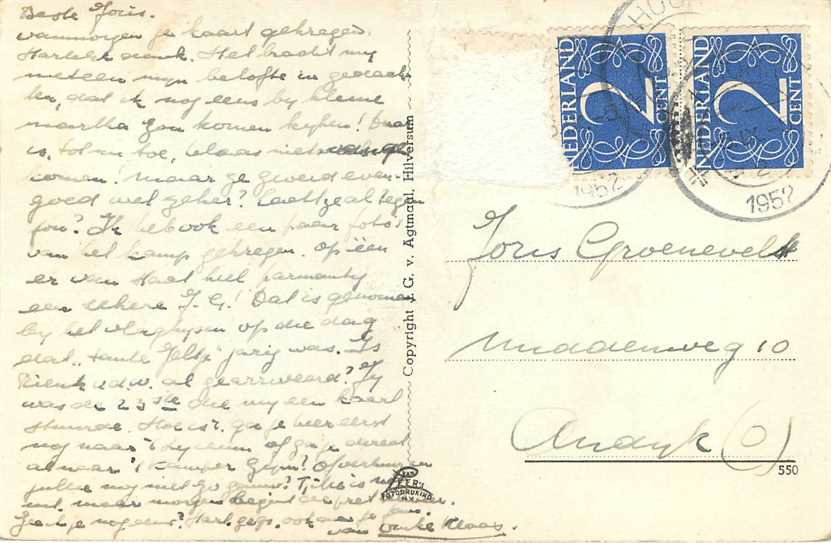 Beste Joris.
vanmorgen je kaart gekregen.
Hartelijk dank. Het bracht my
meteen myn belofte in gedach
ten, dat ik nog eens by kleine
Martha zou komen kyken! Daar
is, tot nu toe, helaas niets van ge
komen! Maar ze groeid even-
goed wel zeker?
fou? Ik heb ook een paar foto's
van het kamp gekregen. Op één
er van staat heel parmantig
een zekere J. G.! Dat is genomen
by het vlaghysen op die dag
dat "tante Jeltje" jarig was. Is
Rienk v.d.v. al gearriveerd? Jy
was de 23ste die my een kaart
stuurde. Hoe is 't, ga je hier eerst
nog naar 't Lyceum of ga je direct
al naar 't Kamper Gym?
jullie nog niet zo gauw? T, this is
uit, maar morgen begint de pret
Zeg je nog eens? Hart. gegr. ook aan je
van Outie Klaas.
Copyright J. G. v. Agtmaal, Hilversum
NEDERLAND
2
CENT
NEDERLAND
2
CENT
1952
1952
Joris Groeneveld
Middenweg 10
Andyk (O)
550
VAN LEER'S
FOTODRUKIND.
N.V.